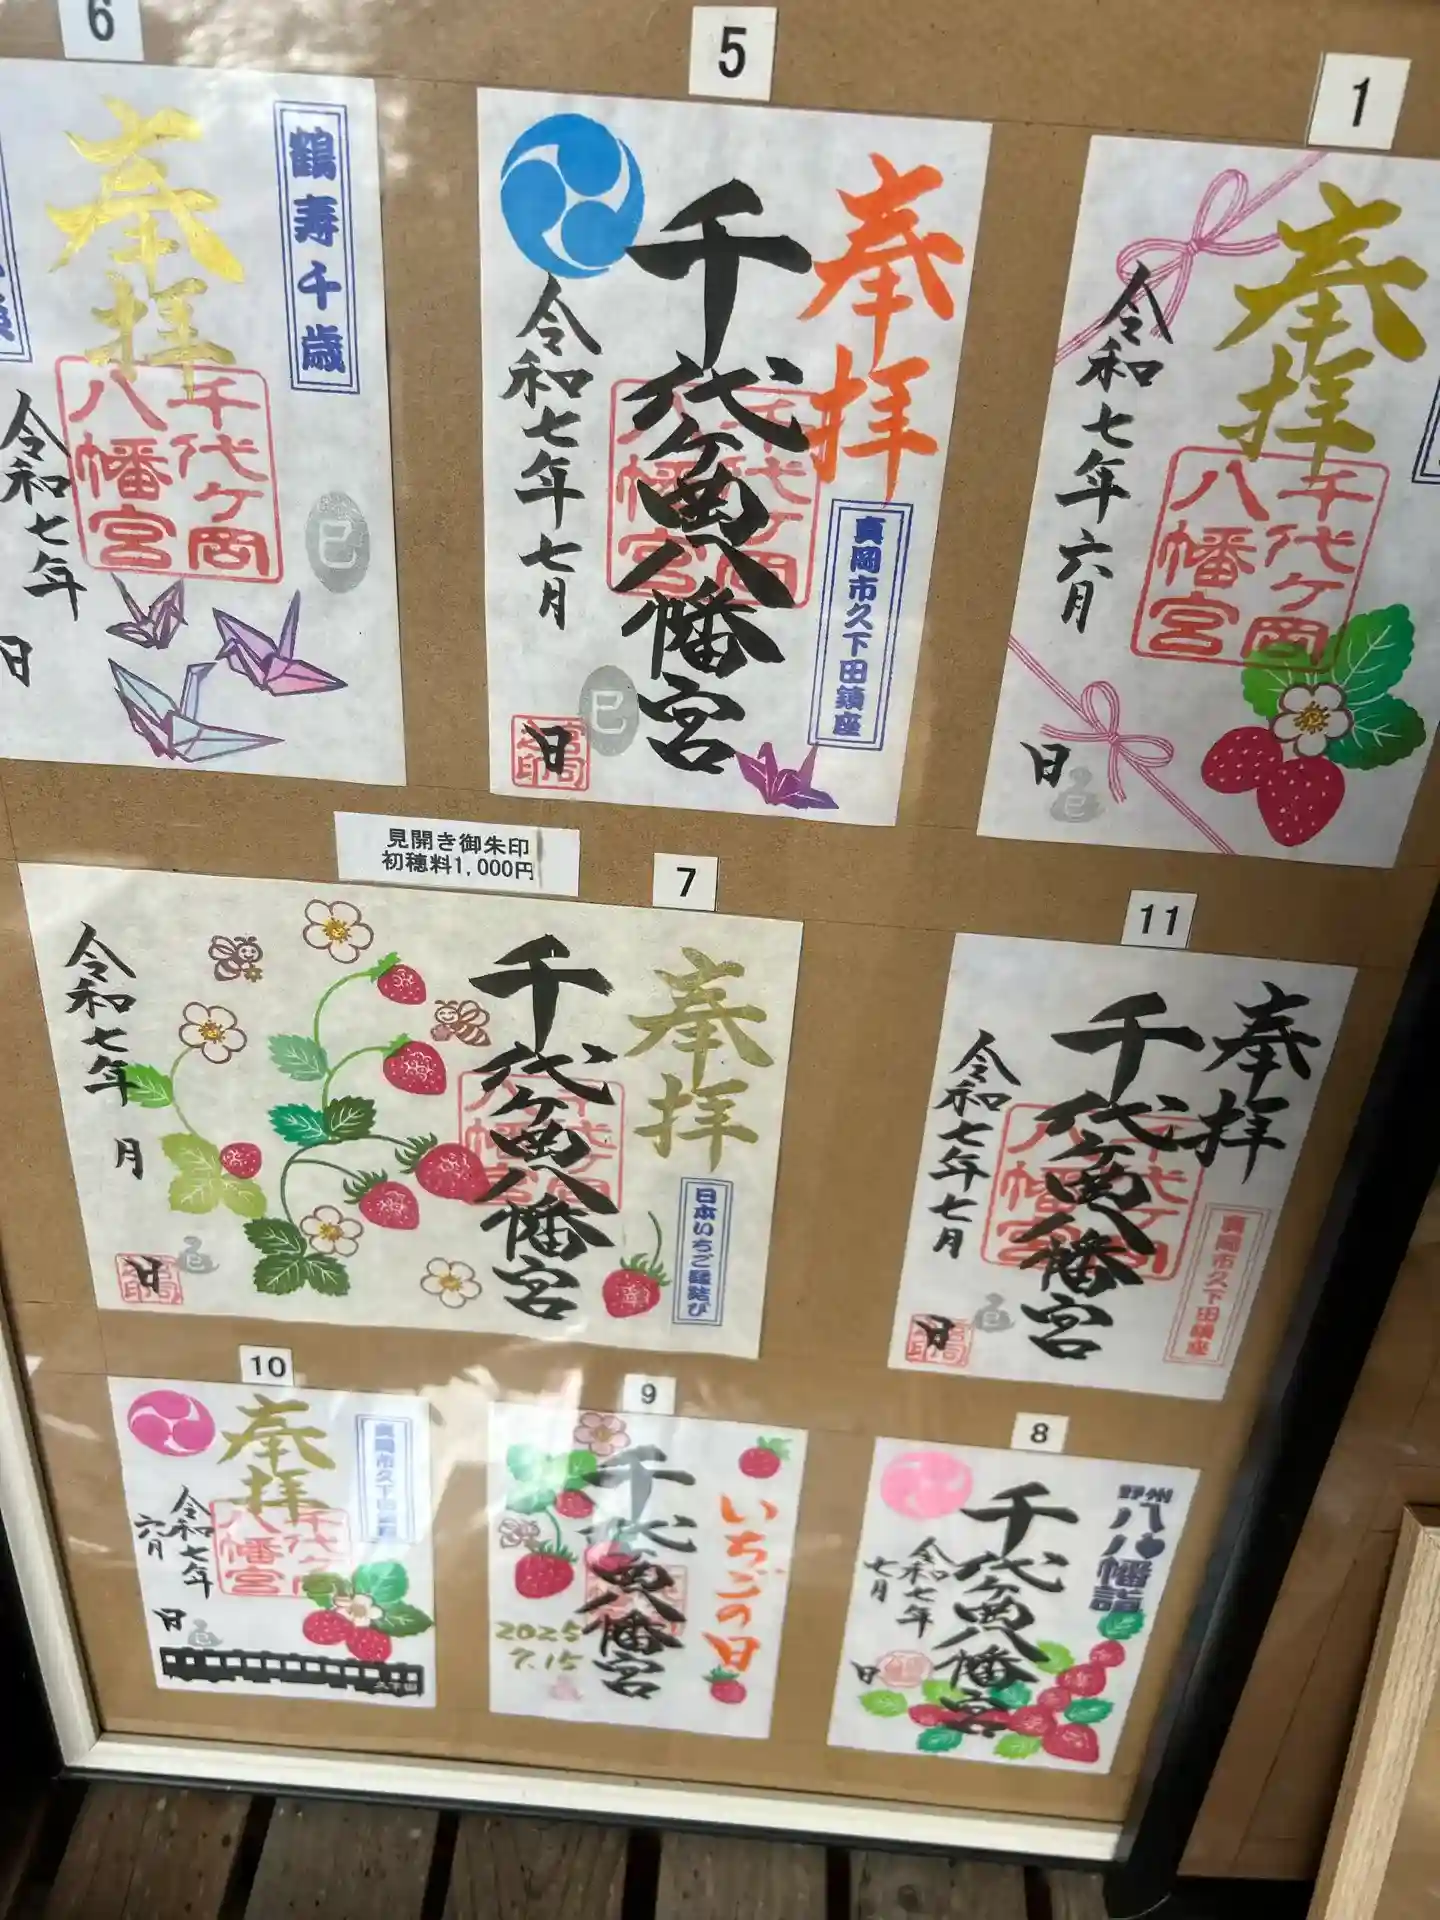 6
奉拝
鶴寿千歳
千代ケ岡
八幡宮
令和七年
日
巳
5
奉拝
千代ケ岡八幡宮
千代ケ岡
八幡宮
真岡市久下田鎮座
令和七年七月
日
巳
1
奉拝
千代ケ岡
八幡宮
令和七年六月
日
巳
見開き御朱印
初穂料1,000円
7
奉拝
千代ケ岡八幡宮
千代ケ岡
八幡宮
日本いちご縁結び
令和七年 月
日
巳
11
奉拝
千代ケ岡八幡宮
千代ケ岡
八幡宮
真岡市久下田鎮座
令和七年七月
日
巳
10
奉拝
千代ケ岡
八幡宮
真岡市久下田
令和七年
六月
日
巳
久下田
9
いちごの日
千代ケ岡八幡宮
2025
7.15
8
野州
八八幡詣
千代ケ岡八幡宮
令和七年
七月
日